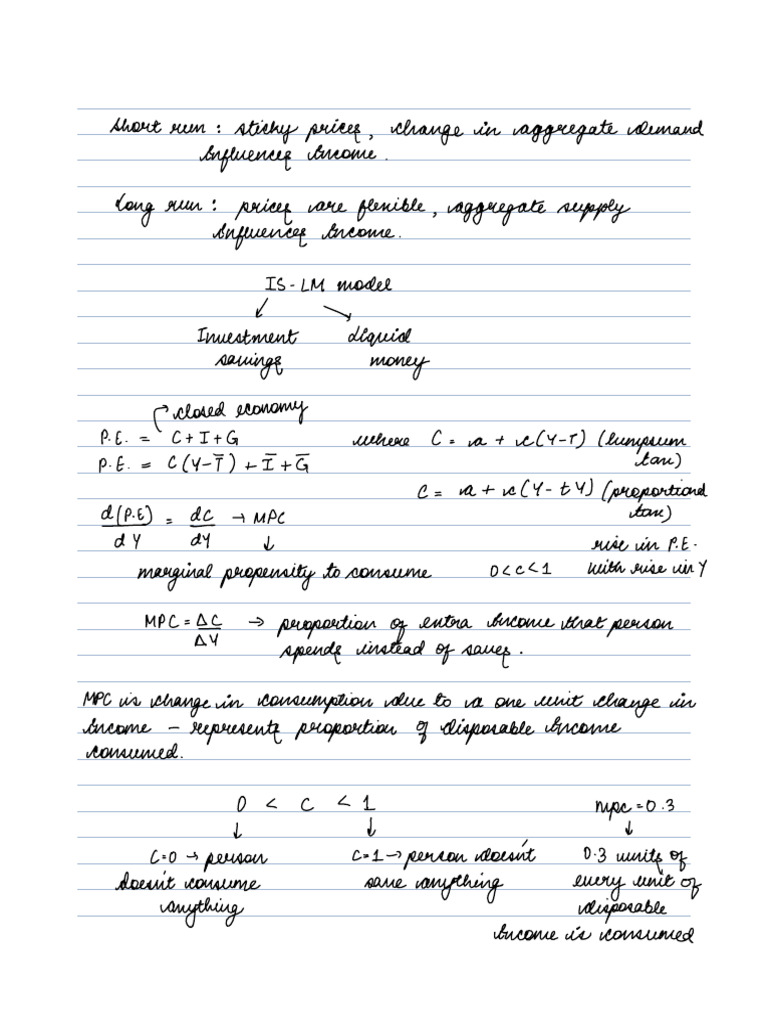 Short run : sticky prices, change in aggregate demand
influences income.
Long run : prices are flexible, aggregate supply
influences income.
IS-LM model
↙ ↘
Investment Liquid
savings money
closed economy
P.E. = C + I + G where C = a + c(Y-T) (lumpsum
tax)
P.E. = C(Y-T̅) + I̅ + G̅
C = a + c(Y-tY) (proportional
tax)
d(P.E)/dY = dC/dY → MPC
↓
rise in P.E.
with rise in Y
marginal propensity to consume 0<c<1
MPC = ΔC/ΔY → proportion of extra income that person
spends instead of saves.
MPC is change in consumption due to a one unit change in
income – represents proportion of disposable income
consumed.
0 < C < 1 mpc = 0.3
↓ ↓ ↓
C=0 → person C=1 → person doesn't 0.3 units of
doesn't consume save anything every unit of
anything disposable
income is consumed